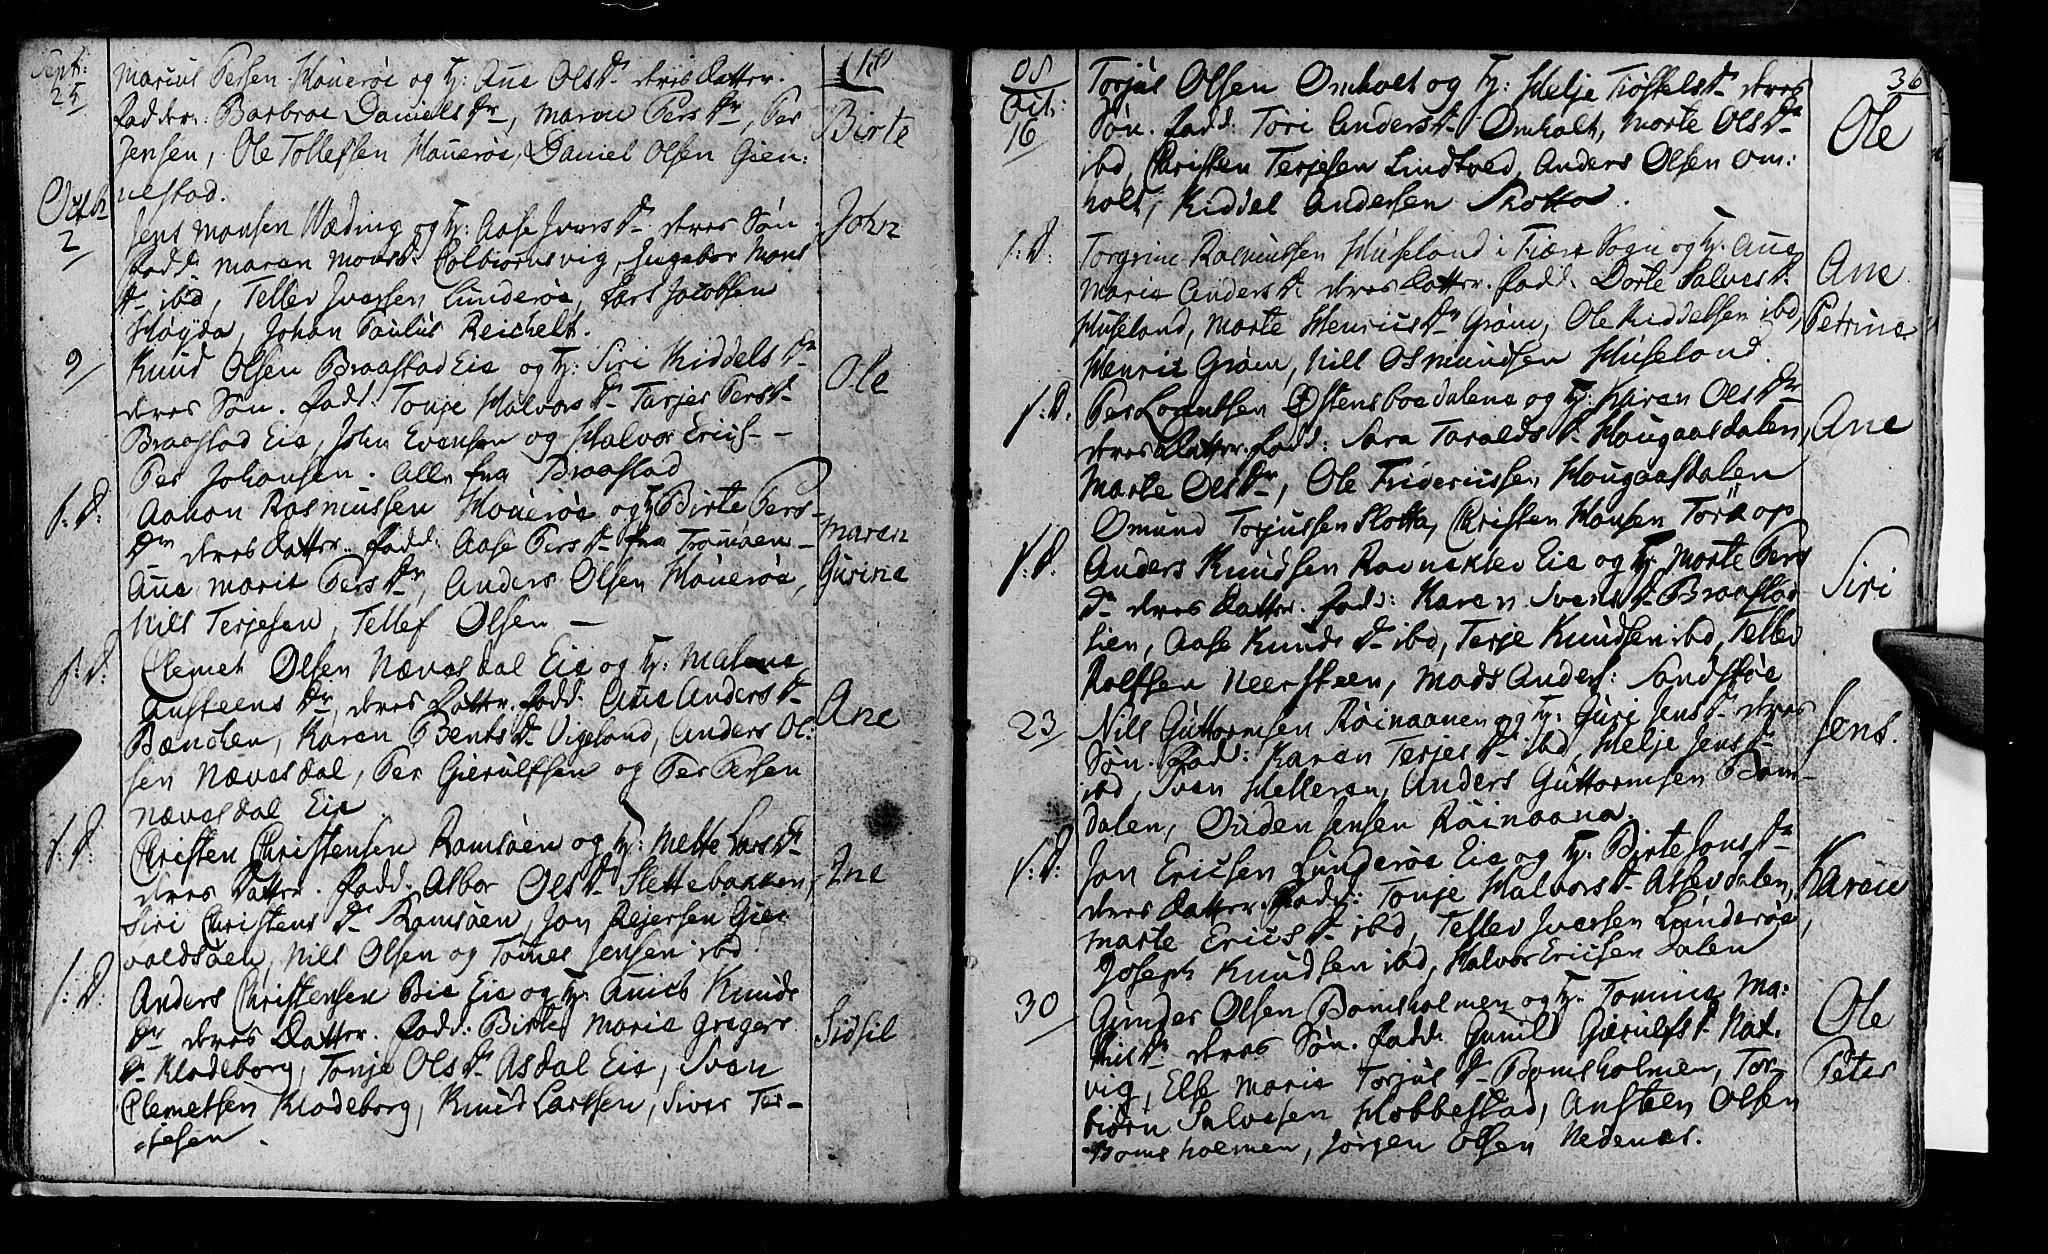 Sept: 25
Marius Persen Houerøe og H: Ane Olsdr deres Datter.
Fadder: Barbroe Danielsdr, Maren Persdr, Per
Jensen, Ole Tollefsen Houerøe, Daniel Olsen Gien:
nestad.
Birte
Octbr 2
Jens Monsen Wæding og H: Aase Iversdr deres Søn
Fadd: Maren Monsdr Colbiørnsvig, Ingebor Mons
dr ibd, Tellev Iversen Lunderøe, Lars Jacobsen
Høgda, Johan Paulus Reichelt.
John
9
Knud Olsen Braastad Eie og H: Siri Kiddelsdr
deres Søn. Fadd: Tonje Halvorsdr Tarjer Persdr
Braastad Eie, John Evensen og Halvor Erics-
Per Johansen. Alle fra Braastad
Ole
f: D:
Aanon Rasmussen Houerøe og H: Birte Pers-
dr deres Datter. Fadd: Aase Persdr fra Tromøen-
Ane Marie Persdr, Anders Olsen Houerøe,
Nils Terjesen, Tellef Olsen -
Maren
Gurine
f: D:
Clemet Olsen Nævesdal Eie og H: Malene
Austeensdr, deres Datter. Fadd: Ane Andersdr
Bænchen, Karen Bentsdr Vigeland, Anders Ol:
sen Nævesdal, Per Gierulfsen og Per Persen
Nævesdal Eie
Ane
f: D:
Christen Christensen Ramsøen og H: Mette Larsdr
deres Datter. Fadd: Albor Olsdr Slettebakken,
Siri Christensdr Ramsøen, Jon Rejersen Gier
valdsøen, Nils Olsen og Tomes Jensen ibd
Ine
f: D:
Anders Christensen Bie Eie og H: Anich Knuds
dr deres Datter. Fadd: Birte Marie Gregers
dr Klodeborg, Tonje Olsdr Asdal Eie, Sven
Clemetsen Klodeborg, Knud Larssen, Siver Ter-
jesen.
Sidsil
36
08
Oct: 16
Torjus Olsen Omholt og H: Helje Tiøstelsdr deres
Søn. Fadd: Tori Andersdr Omholt, Marte Olsdr
ibd, Christen Terjesen Lindtved, Anders Olsen Om:
holt, Kiddel Andersen Slotta.
Ole
f: D:
Torgrim Rasmussen Huseland i Fiære Sogn og H: Ane
Marie Andersdr deres Datter. Fadd: Dorte Salvesdr
Huseland, Marte Henricsdr Grøm, Ole Kiddelsen ibd,
Henric Grøm, Nils Osmundsen Huseland.
Ane
Petrine
f: D:
Per Lorentsen Østensboedalene og H: Karen Olsdr
deres Datter. Fadd: Sara Taraldsdr Hougaasdalen,
Marte Olsdr, Ole Fridericssen Hougaasdalen
Omund Torjussen Slotta, Christen Hansen Torsop
Ane
f: D:
Anders Knudsen Ravneklev Eie og H: Marte Pers
dr deres Datter. Fadd: Karen Svensdr Braastad
Eien, Aase Knudsdr ibd, Terje Knudsen ibd, Tellev
Rolfsen Neersteen, Mads Anders: Sandstøe
Siri
23
Nils Guttormsen Røinaanen og H: Guri Jensdr deres
Søn. Fadd: Karen Terjesdr ibd, Helje Jensdr
ibd, Sven Helleren, Anders Guttormsen Bom-
dalen, Ouden Jensen Røinaana.
Jens.
f: D:
Jon Ericsen Lunderøe Eie og H: Birte Jonsdr
deres Datter. Fadd: Tonje Halvorsdr Assevdalen,
Marte Ericsdr ibd, Tellev Iversen Lunderøe,
Joseph Knudsen ibd, Halvor Ericsen Dalen
Karen
30
Gunder Olsen Bomsholmen og H: Tomine Ma:
thisdr deres Søn. Fadd: Gunild Gierulfsdr Nat-
vig, Else Marie Torjusdr Bomsholmen, Tor-
biørn Salvesen Hobbestad, Austeen Olsen
Bomsholmen, Jørgen Olsen Nedenæs.
Ole
Peter